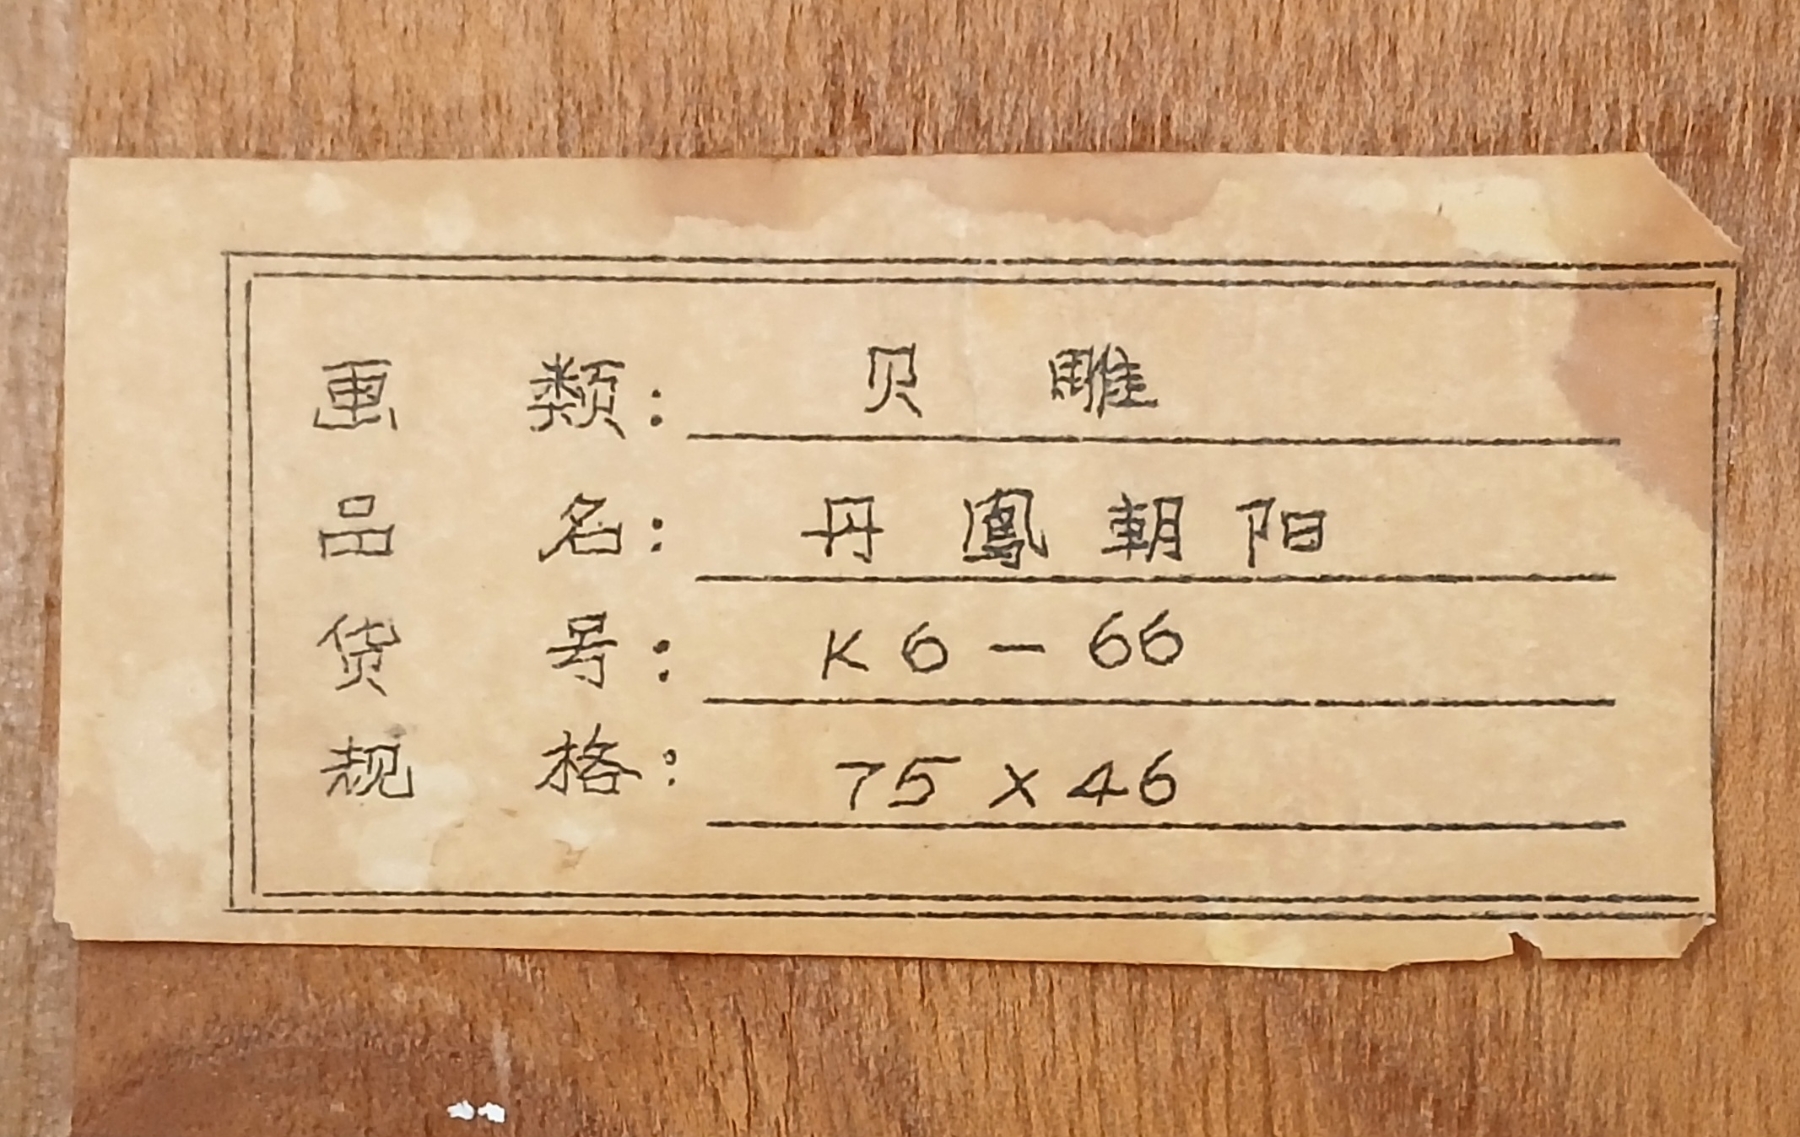 画类: 贝雕
品名: 丹鳳朝阳
货号: K6-66
规格: 75×46